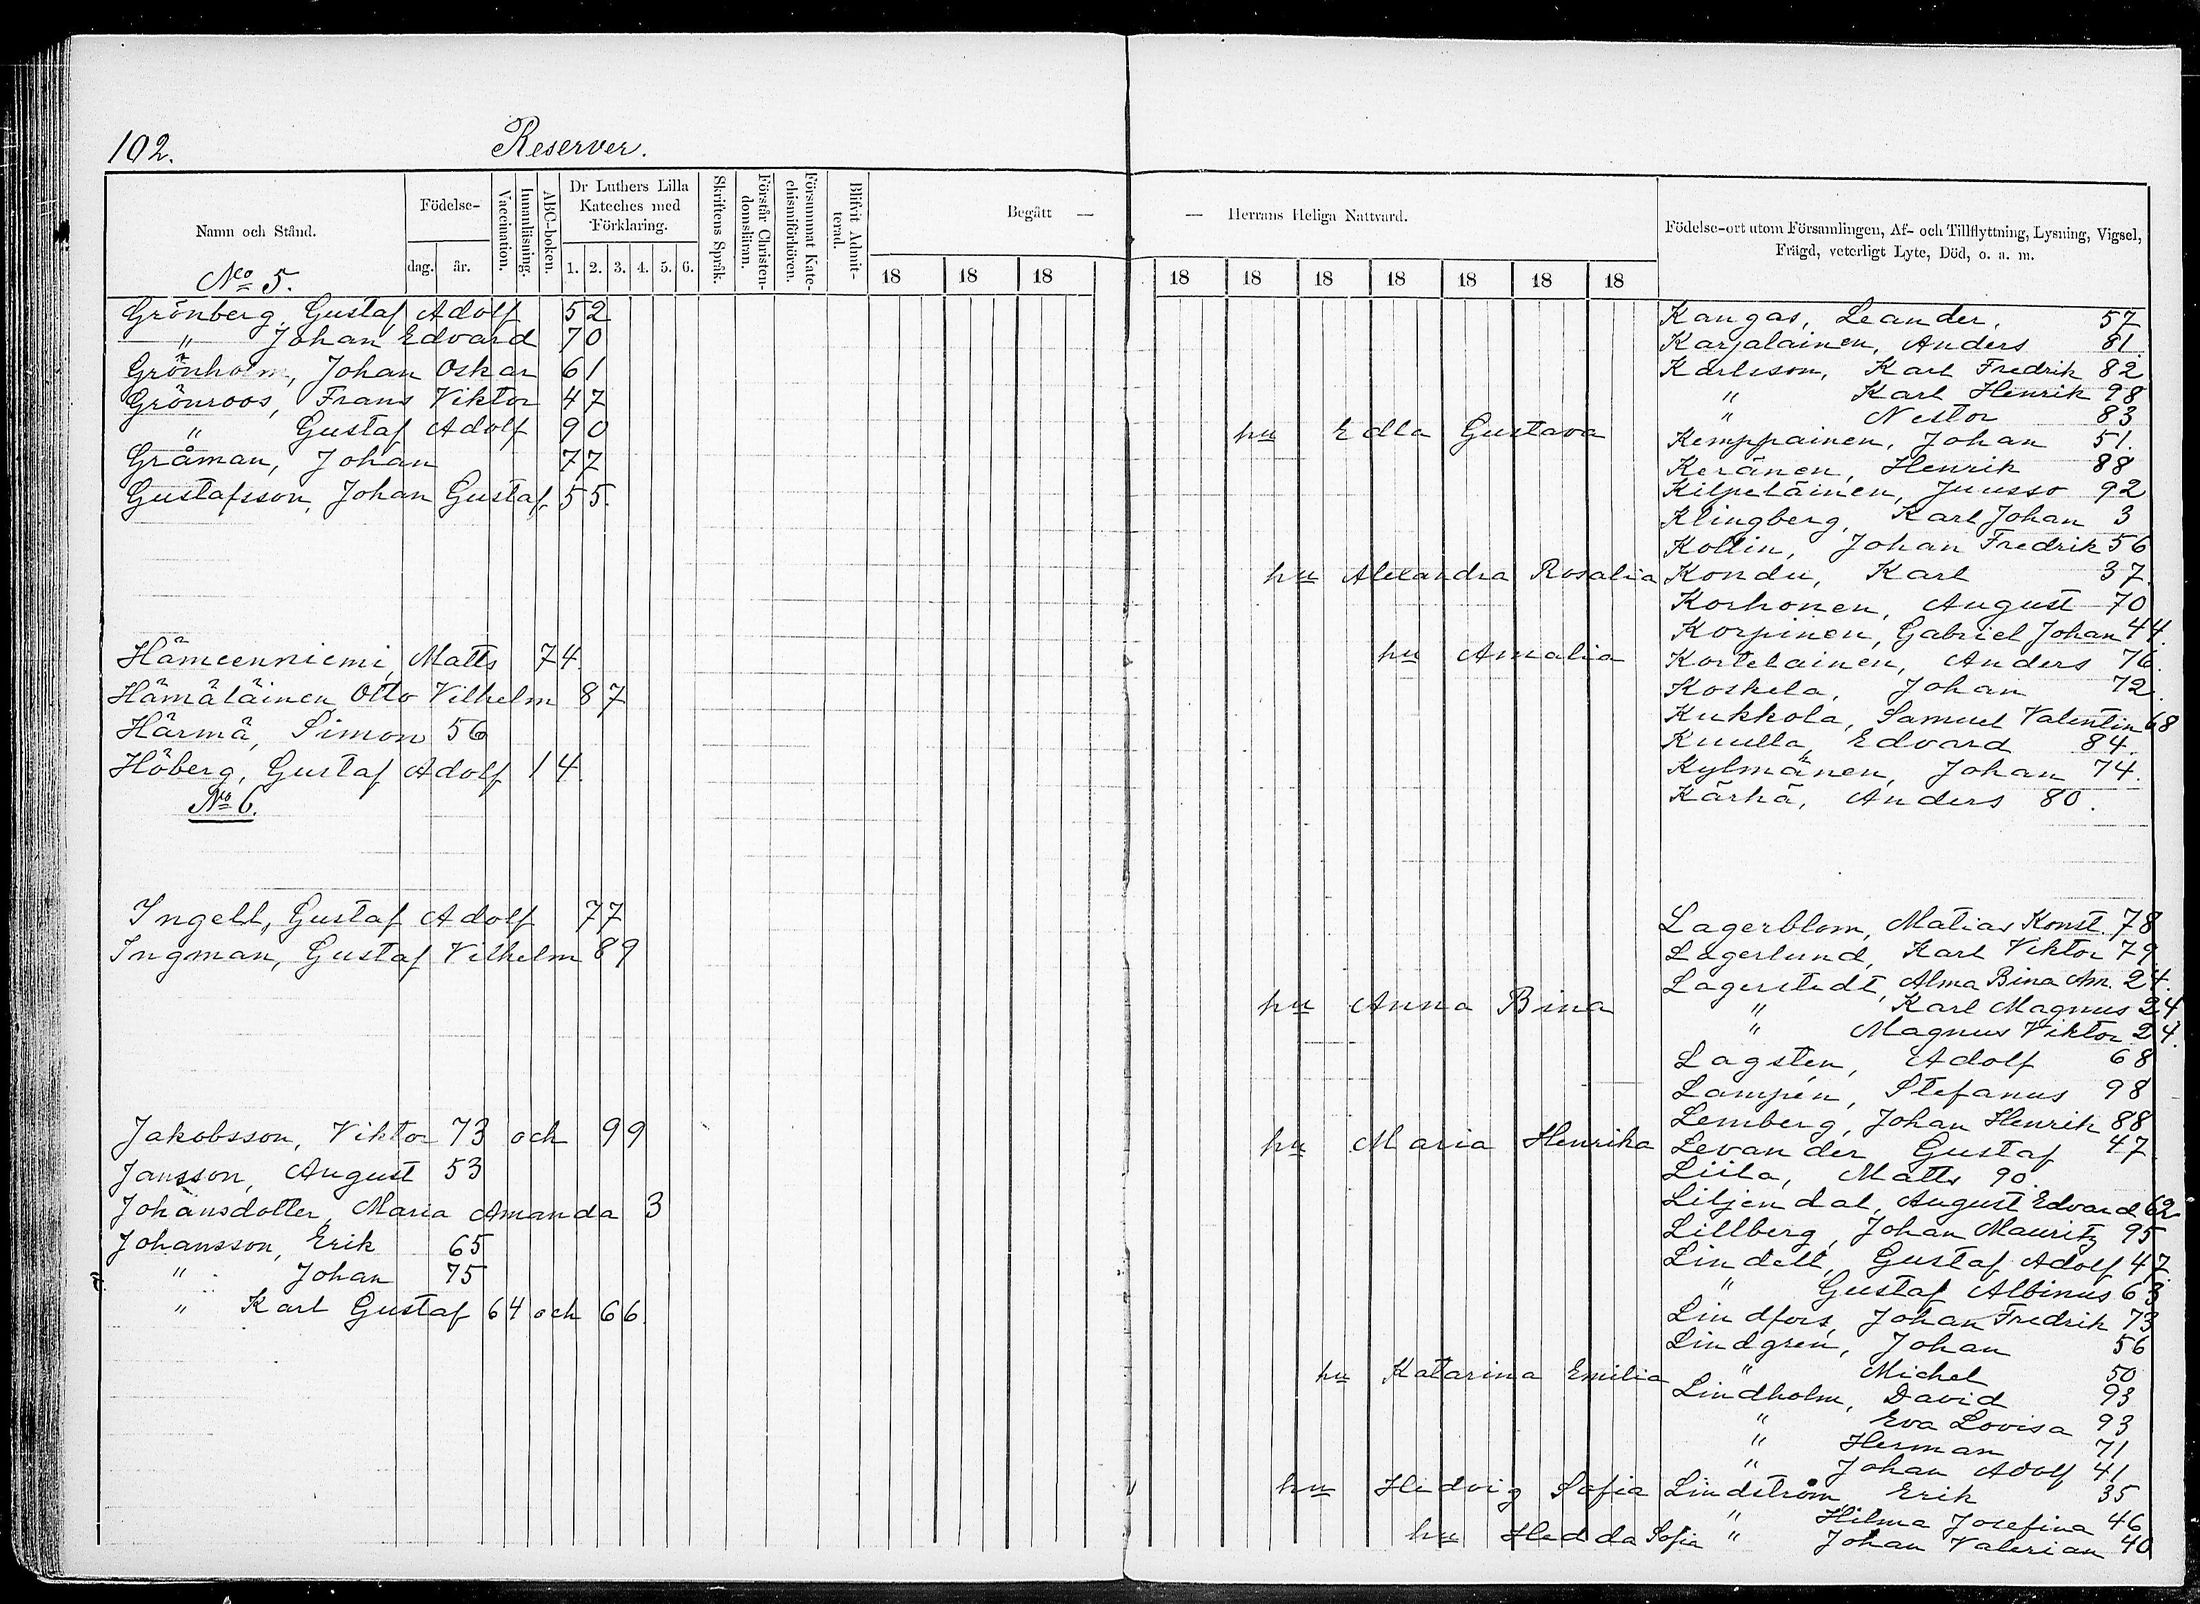 102.
Reserver.
Namn och Stånd.
Födelse-
dag.
år.
Vaccination.
Innanläsning.
ABC-boken.
Dr Luthers Lilla
Kateches med
Förklaring.
1. 2. 3. 4. 5. 6.
Skriftens Språk.
Förstår Christen-
domsläran.
Försummat Kate-
chismiförhören.
Blifvit Admit-
terad.
Begått —
18 18 18
No 5.
Grönberg, Gustaf Adolf 52
" Johan Edvard 70
Grönholm, Johan Oskar 61
Grönroos, Frans Viktor 47
" Gustaf Adolf 90
Gråman, Johan 77
Gustafsson, Johan Gustaf, 55.
Hämeenniemi, Matts 74
Hämäläinen Otto Vilhelm 87
Härmä, Simon 56
Höberg, Gustaf Adolf 14.
No 6.
Ingell, Gustaf Adolf 77
Ingman, Gustaf Vilhelm 89
Jakobsson, Viktor 73 och 99
Jansson, August 53
Johansdotter, Maria Amanda 3
Johansson, Erik 65
" Johan 75
" Karl Gustaf 64 och 66.
— Herrans Heliga Nattvard.
18 18 18 18 18 18 18
Födelse-ort utom Församlingen, Af- och Tillflyttning, Lysning, Vigsel,
Frägd, veterligt Lyte, Död, o. a. m.
Kangas, Leander, 57
Karjalainen, Anders 81.
Karlsson, Karl Fredrik 82
" Karl Henrik 98
" Nestor 83
hu Edla Gustava Kemppainen, Johan 51.
Keränen, Henrik 88
Kilpeläinen, Juusso 92
Klingberg, Karl Johan 3
Kollin, Johan Fredrik 56
hu Alexandra Rosalia Kondu, Karl 37.
Korhonen, August 70
Korpinen, Gabriel Johan 44.
hu Amalia Kortelainen, Anders 76.
Koskela, Johan 72.
Kukkola, Samuel Valentin 68
Kuulla, Edvard 84.
Kylmänen, Johan 74.
Kärhä, Anders 80.
Lagerblom, Matias Konst. 78
Lagerlund, Karl Viktor 79.
Lagerstedt, Alma Bina Am. 24.
hu Anna Bina " Karl Magnus 24
" Magnus Viktor 24.
Lagsten, Adolf 68
Lampén, Stefanus 98
Lemberg, Johan Henrik 88
hu Maria Henrika Levander Gustaf 47
Liila, Matts 90.
Liljendal, August Edvard 62
Lillberg, Johan Mauritz 95
Lindell, Gustaf Adolf 47.
" Gustaf Albinus 63
Lindfors, Johan Fredrik 73
Lindgren, Johan 56
hu Katarina Emilia " Michel 50
Lindholm, David 93
" Eva Lovisa 93
" Herman 71
" Johan Adolf 41
hu Hedvig Sofia Lindström Erik 35
" Hilma Josefina 46
hu Hedda Sofia " Johan Valerian 40